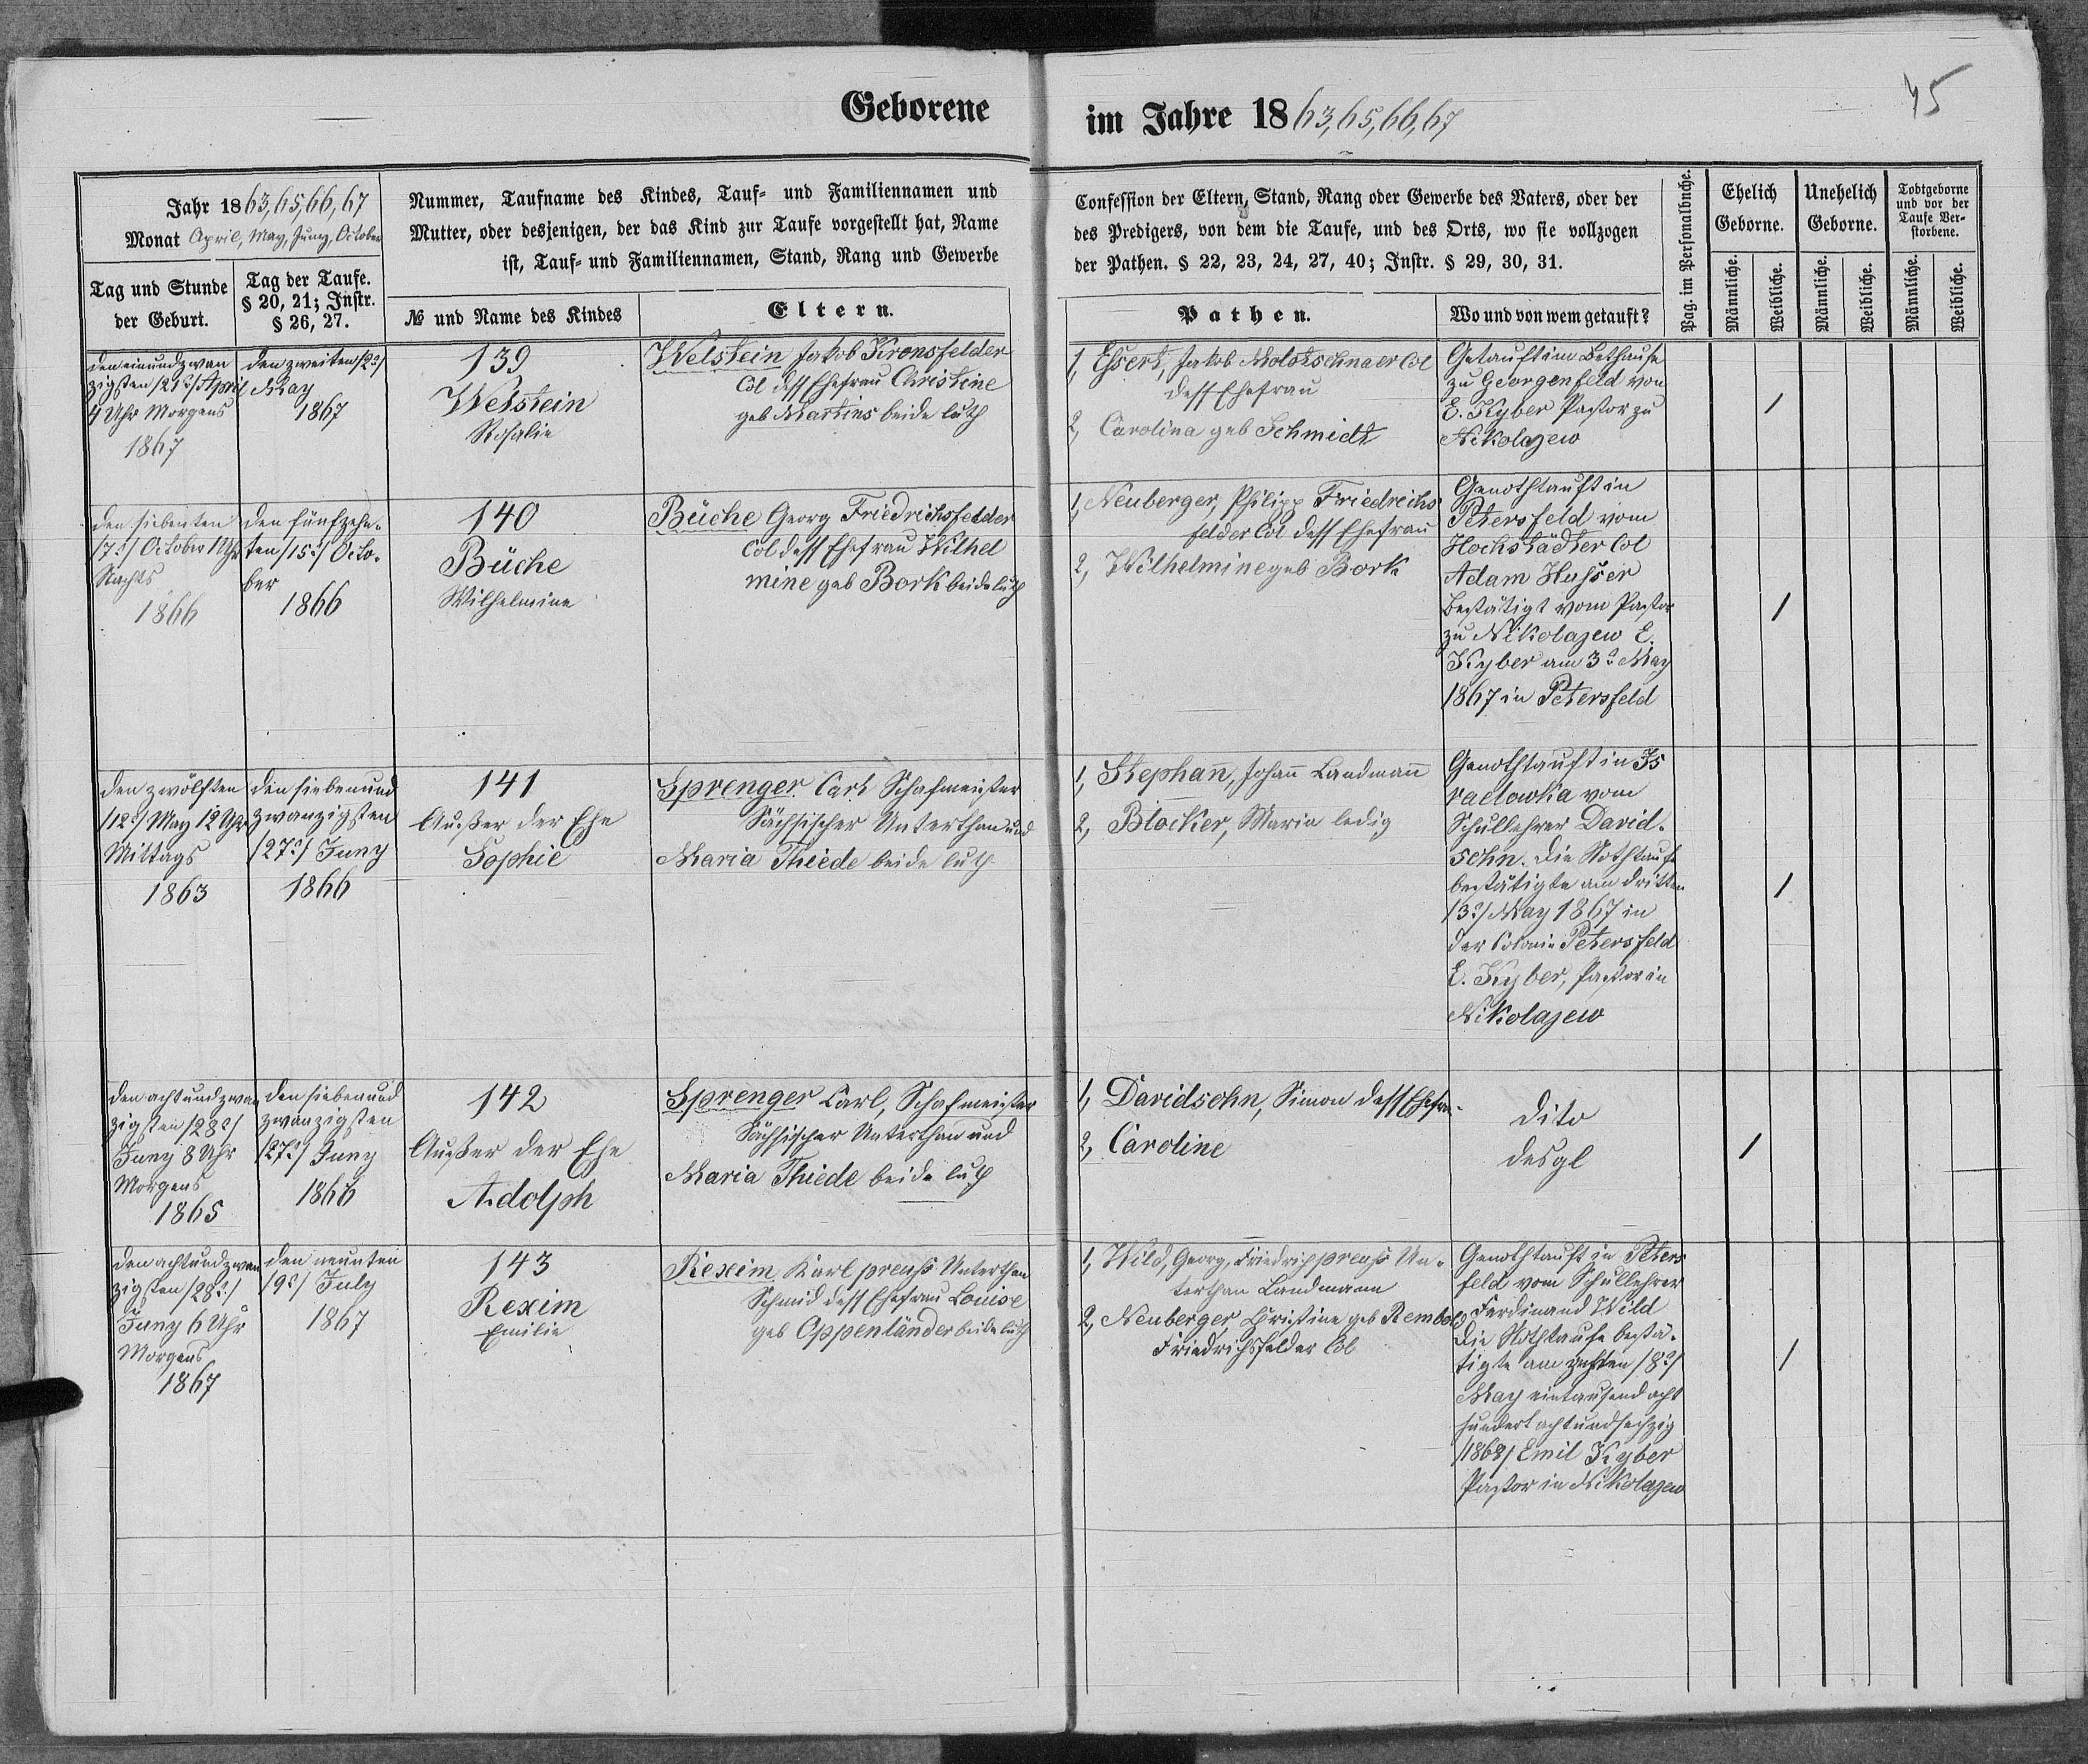 Geborene
im Jahre 1863,65,66,67
45
Jahr 1863,65,66,67
Monat April, May, Juny, October
Tag und Stunde
der Geburt.
Tag der Taufe.
§ 20, 21; Instr.
§ 26, 27.
Nummer, Taufname des Kindes, Tauf- und Familiennamen und
Mutter, oder desjenigen, der das Kind zur Taufe vorgestellt hat, Name
ist, Tauf- und Familiennamen, Stand, Rang und Gewerbe
№ und Name des Kindes
Eltern.
Confession der Eltern, Stand, Rang oder Gewerbe des Vaters, oder der
des Predigers, von dem die Taufe, und des Orts, wo sie vollzogen
der Pathen. § 22, 23, 24, 27, 40; Instr. § 29, 30, 31.
Pathen.
Wo und von wem getauft?
Pag. im Personalbuche.
Ehelich
Geborne.
Unehelich
Geborne.
Todtgeborne
und vor der
Taufe Ver-
storbene.
Männliche.
Weibliche.
Männliche.
Weibliche.
Männliche.
Weibliche.
den einundzwan
zigsten /21?/ April
4 Uhr Morgens
1867
den zweiten /2?/
May
1867
139
Welstein
Rosalie
Welstein Jakob Kronsfelder
Col dess Ehefrau Christine
geb Martins beide luth
1, Essert, Jakob Molotschnaer Col
dess Ehefrau
2, Carolina geb Schmidt
Getauft im Bethause
zu Georgenfeld von
E. Kyber Pastor zu
Nikolajew
/
den siebenten
/7?/ October 1 Uhr
Nachts
1866
den fünfzehn-
ten /15?/ Octo-
ber
1866
140
Büche
Wilhelmine
Büche Georg Friedrichsfelder
Col dess Ehefrau Wilhel
mine geb Bork beide luth
1, Neuberger, Philipp Friedrichs
felder Col dess Ehefrau
2, Wilhelmine geb Bork
Genothtauft in
Petersfeld vom
Hochstädter Col
Adam Husser
bestätigt vom Pastor
zu Nikolajew E.
Kyber am 3? May
1867 in Petersfeld
/
den zwölften
/12?/ May 12 Uhr
Mittags
1863
den siebenund
zwanzigsten
/27?/ Juny
1866
141
Außer der Ehe
Sophie
Sprenger Carl Schafmeister
Sächsischer Unterthan und
Maria Thiede beide luth
1, Stephan̄, Johan̄ Landman̄
2, Blöcker, Maria ledig
Genothtauft in Is
raelowka vom
Schullehrer David-
sohn. Die Nothtaufe
bestätigte am dritten
/3?/ May 1867 in
der Colonie Petersfeld
E. Kyber, Pastor in
Nikolajew
/
den achtundzwan
zigsten /28?/
Juny 8 Uhr
Morgens
1865
den siebenund
zwanzigsten
/27?/ Juny
1866
142
Außer der Ehe
Adolph
Sprenger Carl, Schafmeister
Sächsischer Unterthan und
Maria Thiede beide luth
1, Davidsohn, Simon dess Ehefr.
2, Caroline
dito
desgl
/
den achtundzwan
zigsten /28?/
Juny 6 Uhr
Morgens
1867
den neunten
/9?/ July
1867
143
Rexim
Emilie
Rexim Karl preuß Unterthan
Schmid dess Ehefrau Louise
geb Oppenländer beide luth
1, Wild, Georg, Friedrich preuß Un-
terthan Landmann
2, Neuberger Christine geb Rembold
Friedrichsfelder Col
Genothtauft in Peters
feld vom Schullehrer
Ferdinand Wild
Die Nothtaufe bestä-
tigte am achten /8?/
May eintausend acht
hundert achtundsechzig
/1868/ Emil Kyber
Pastor in Nikolajew
/